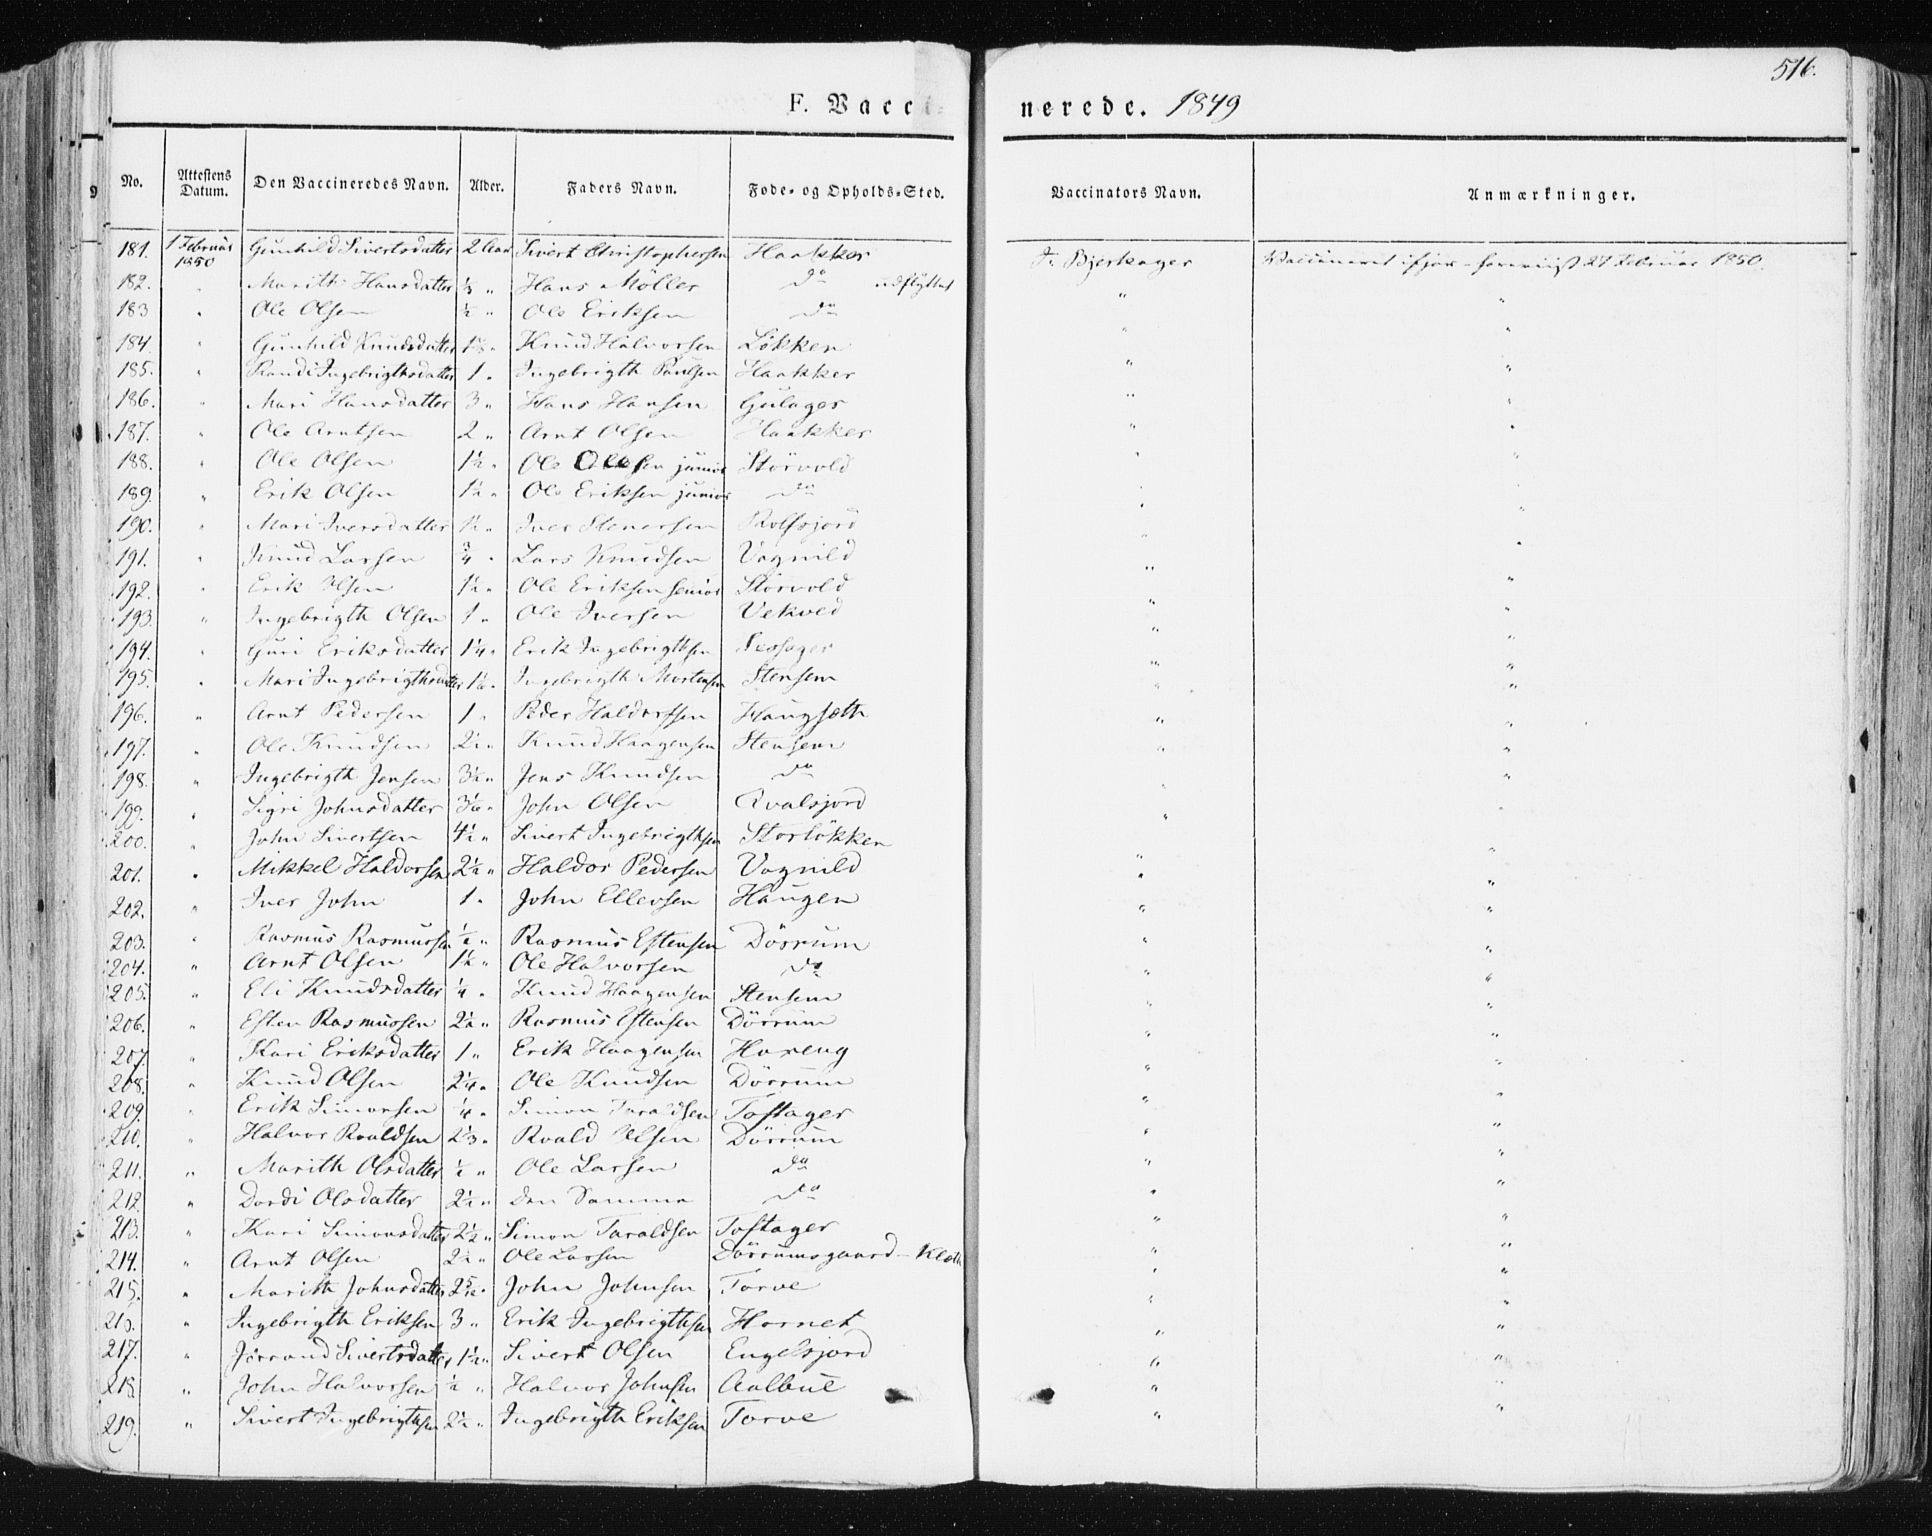 516.
F. Vacci- nerede. 1849
No. Attestens Datum. Den Vaccineredes Navn. Alder. Faders Navn. Føde- og Opholds-Sted. Vaccinators Navn. Anmærkninger.
181. 1 Februar 1850 Gunhild Sivertsdatter 2 Aar Sivert Christophersen Haakker Bjerkager 27 Februar 1850.
182. " Marith Hansdatter Hans Möller do udflyttet "
183 " Ole Olsen ½ " Ole Eriksen do "
184. " Gunhild Knudsdatter Knud Halvorsen Lökken "
185. " Randi Ingebrigthsdatter 1 " Ingebrigth Paulsen Haakker "
186. " Mari Hansdatter 3 " Hans Hansen Gulager "
187. " Ole Arntsen 2 " Arnt Olsen Haakker "
188. " Ole Olsen 1½ " Ole Olsen junior Storvold "
189. " Erik Olsen 1½ " Ole Eriksen junior do "
190. " Mari Iversdatter 1½ " Iver Stenersen Rolfsjord "
191. " Knud Larsen ¾ " Lars Knudsen Vognild "
192. " Erik Olsen 1½ " Ole Eriksen senior Storvold "
193. " Ingebrigth Olsen 1 " Ole Iversen Vekved "
194. " Guri Eriksdatter 1¼ " Erik Ingebrigthsen "
195. " Mari Ingebrigthsdatter Ingebrigth Mortensen Stensem "
196. " Arnt Pedersen 1 " Peder Haldorssen Haugsæth "
197. " Ole Knudsen 2½ " Knud Haagensen Stensem "
198. " Ingebrigth Jensen 3½ " Jens Knudsen do "
199. " Sigri Johnsdatter John Olsen Qvalsjord "
200. " John Sivertsen 4½ " Sivert Ingebrigthsen Storlökken "
201. " Mikkel Haldorsen 2½ " Haldor Pedersen Vognild "
202. " Iver John 1 " John Ellevsen Haugen "
203. " Rasmus Rasmussen ½ " Rasmus Estensen Dörrum "
204. " Arnt Olsen 1½ " Ole Halvorsen do "
205. " Eli Knudsdatter ¼ " Knud Haagensen Stensem "
206. " Esten Rasmussen 2½ " Rasmus Estensen Dörrum "
207. " Kari Eriksdatter 1 " Erik Haagensen Hoxeng "
208. " Knud Olsen 2¼ " Ole Knudsen Dörrum "
209. " Erik Simonsen ¼ " Simon Taraldsen Toftager "
210. " Halvor Roaldsen 2⅓ " Roald Olsen Dörrum "
211. " Marith Olsdatter ½ " Ole Larsen do "
212. " Dordi Olsdatter 2½ " den Samme do "
213. " Kari Simonsdatter 2½ " Simon Taraldsen Toftager "
214. " Arnt Olsen 2½ " Ole Larsen Dörrumsgaard-Kleth "
215. " Marith Johnsdatter John Johnsen Torve "
216. " Ingebrigth Eriksen 3 " Erik Ingebrigthsen Hornet "
217. " Jörrand Sivertsdatter 1½ " Sivert Olsen Engelsjord "
218 " John Halvorsen ½ " Halvor Johnsen Aalbue "
219. " Sivert Ingebrigthsen 2½ " Ingebrigth Eriksen Torve "